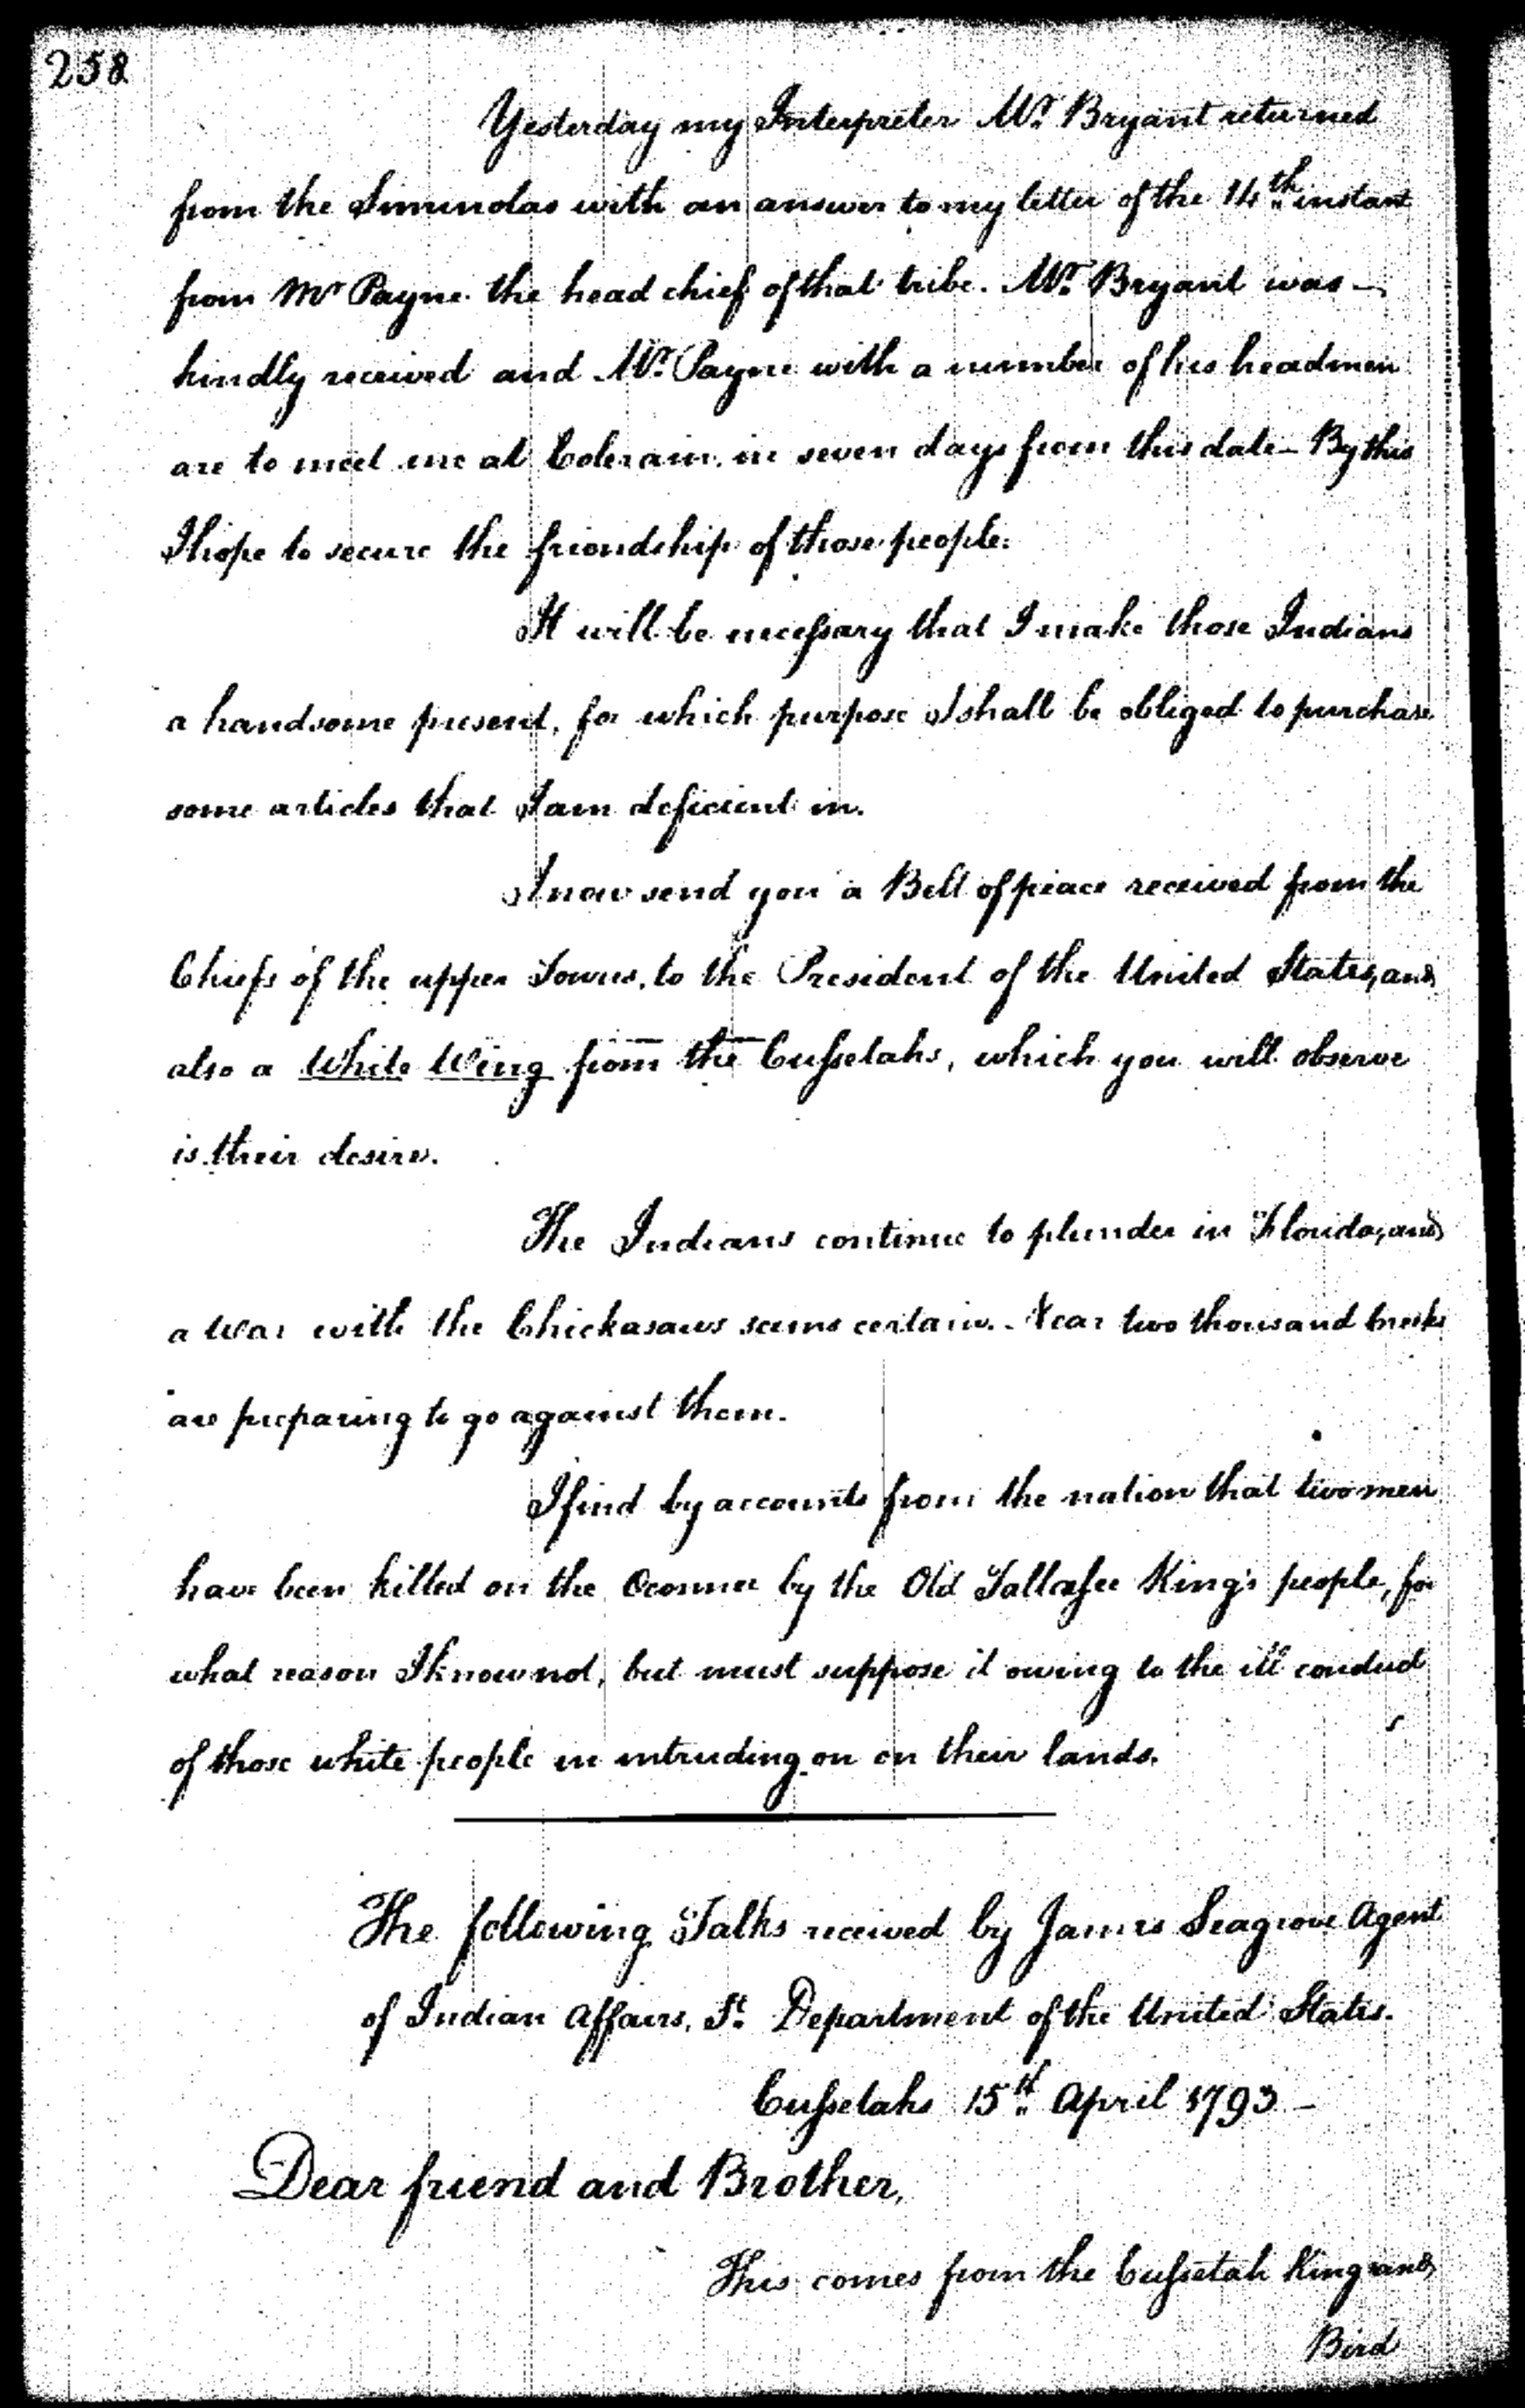 258
Yesterday my Interpreter Mr. Bryant returned
from the Siminolas with an answer to my letter of the 14th instant
from Mr Payne the head chief of that tribe. Mr. Bryant was —
kindly received and Mr. Payne with a number of his headmen
are to meet me at Colerain in seven days from this date — By this
I hope to secure the friendship of those people.
It will be necessary that I make those Indians
a handsome present, for which purpose I shall be obliged to purchase
some articles that I am deficient in.
I now send you a Belt of peace received from the
Chiefs of the upper Towns, to the President of the United States, and
also a White Wing from the Cussetahs, which you will observe
is their desire.
The Indians continue to plunder in Florida, and
a war with the Chickasaws seems certain. - Near two thousand Creeks
are preparing to go against them.
I find by accounts from the nation that two men
have been killed on the Oconnee by the Old Tallassee King's people, for
what reason I know not, but must suppose it owing to the ill conduct
of those white people in intruding on on their lands.
The following Talks received by James Seagrove Agent
of Indian Affairs, St. Department of the United States.
Cussetahs 15th April 1793 —
Dear friend and Brother,
This comes from the Cussetah King and
Bird